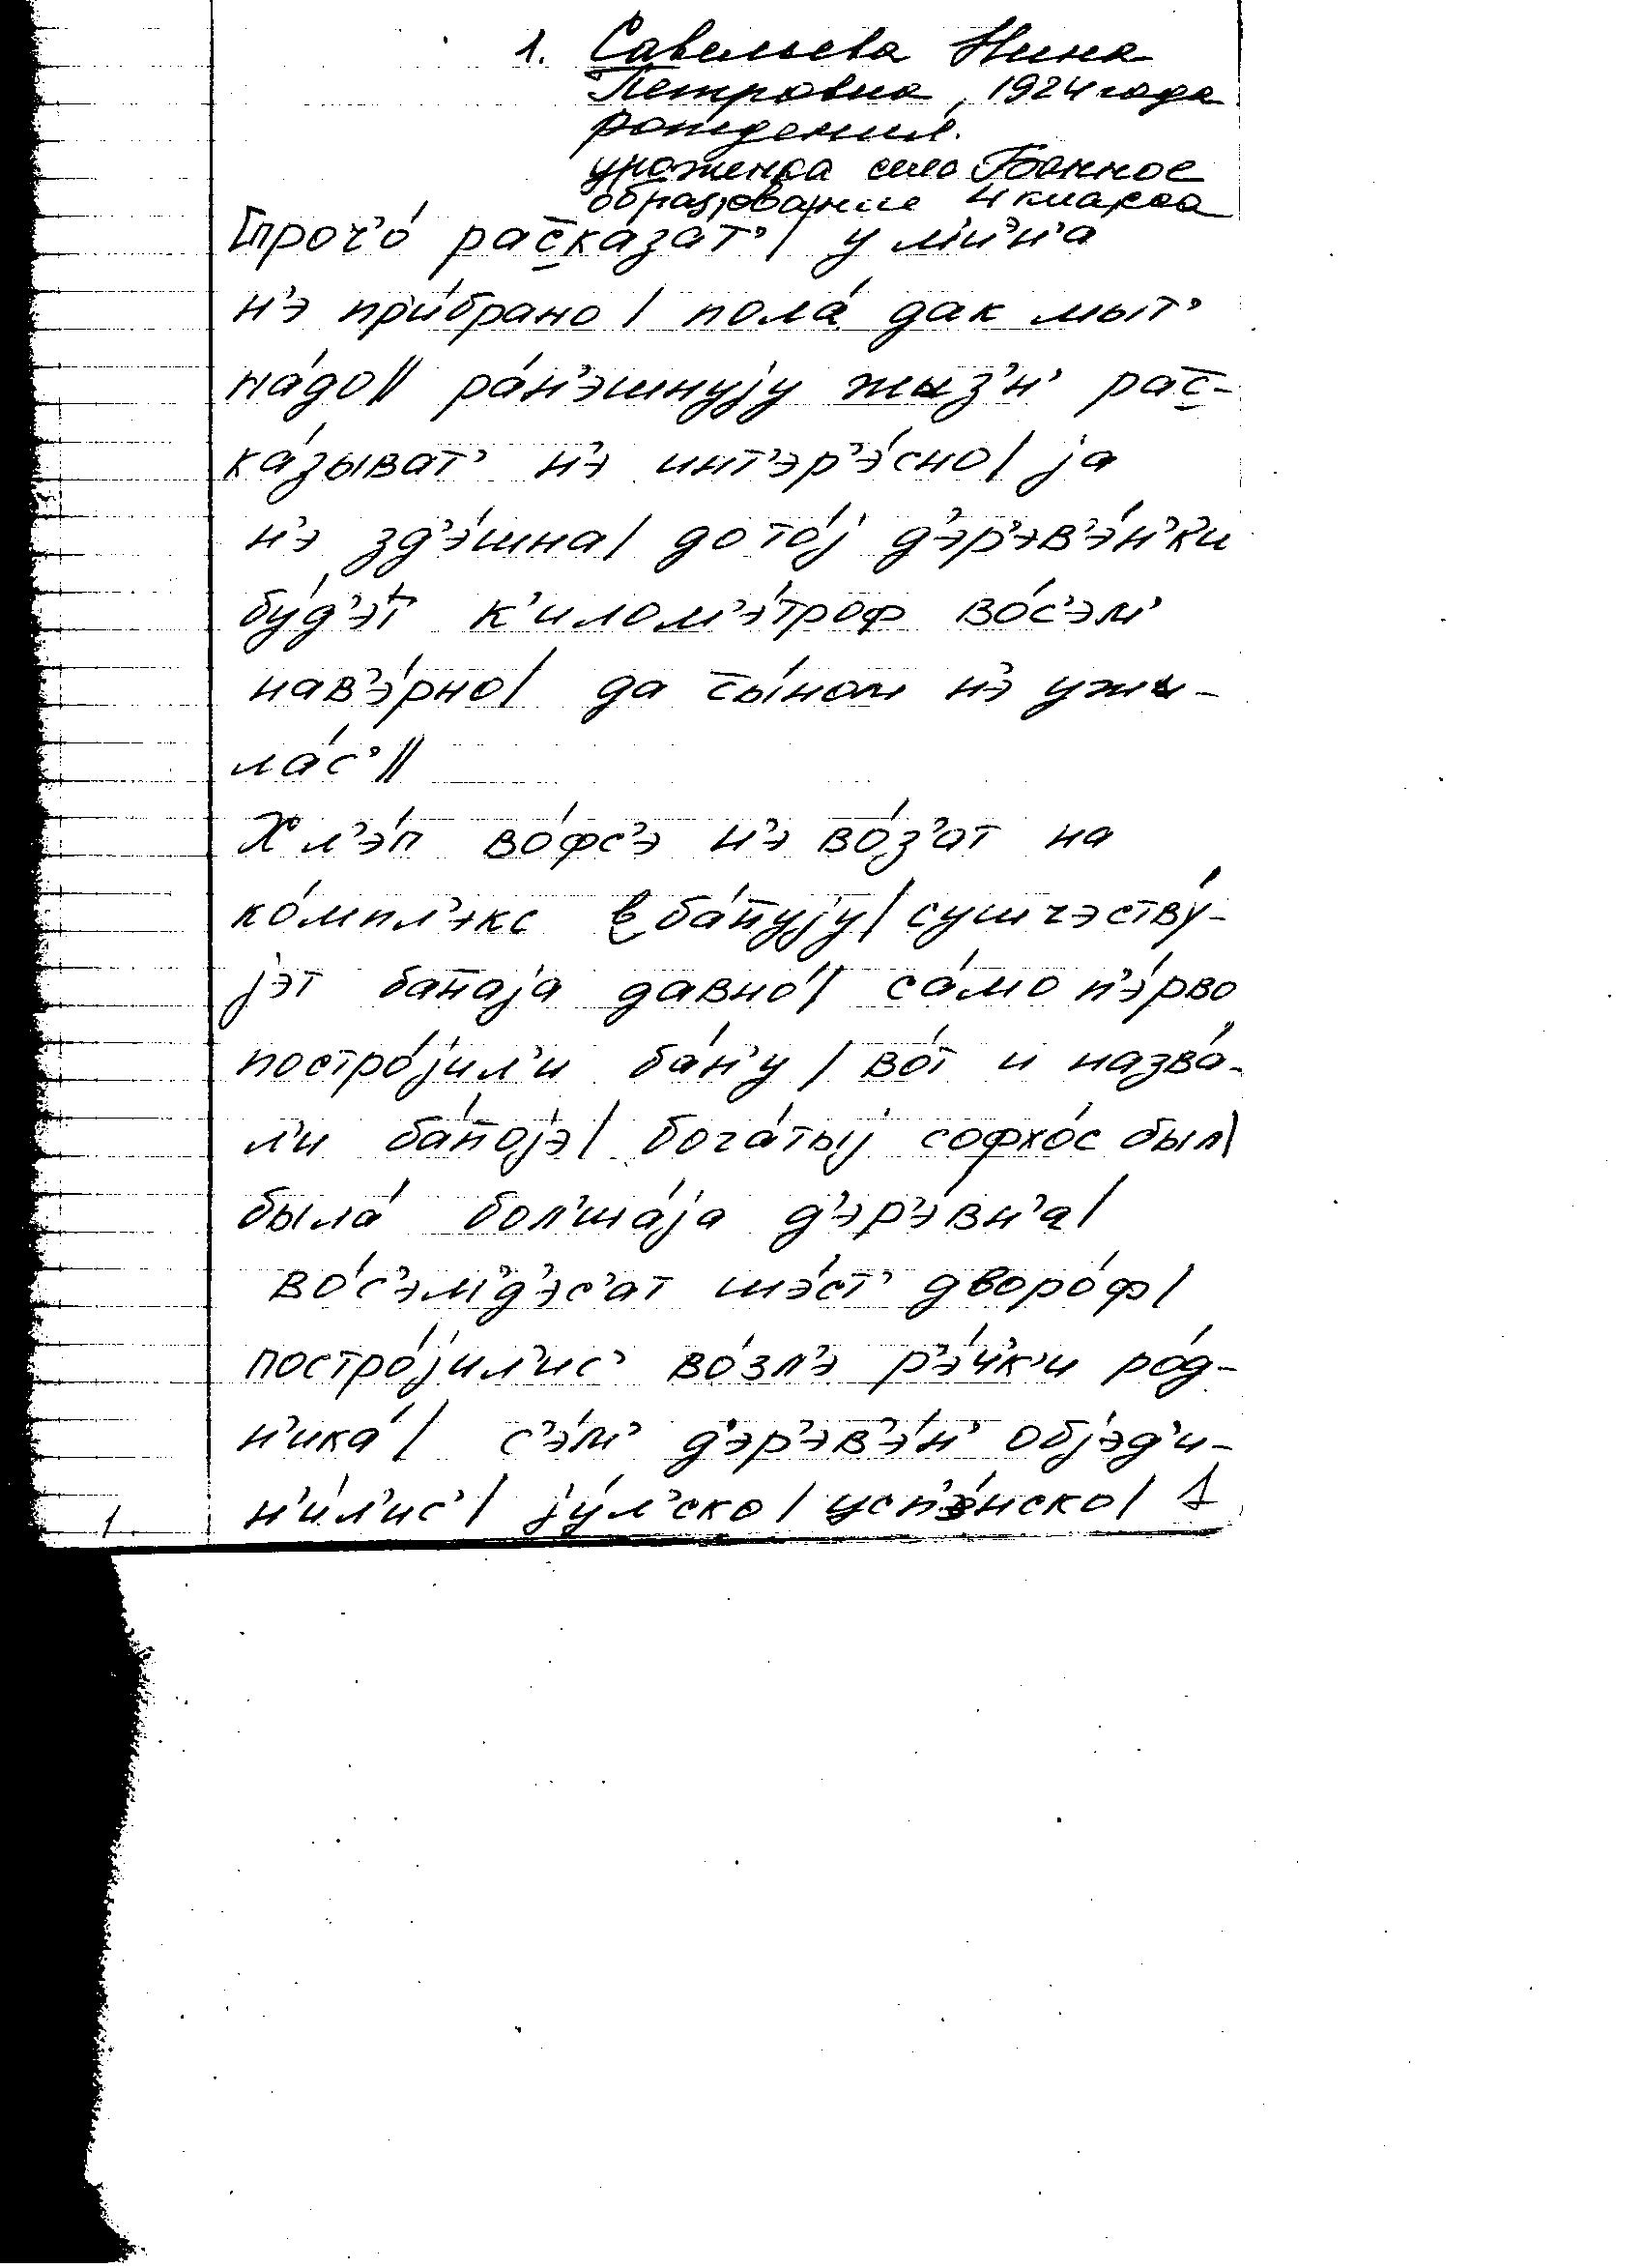 1. Савельева Нина
Петровна, 1924 года
рождения.
уроженка село Банное
образование 4 класса
проч’о́ рас̅каза́т’/ у м’ин’а́
н’э при́брано/ пола́ дак мыт’
на́до// ра́н’эшнују жыз’н’ рас̅-
ка́зыват’ н’э инт’эр’э́сно/ ја
н’э зд’э́шна/ до то́ј д’эр’эв’э́н’к’и
бу́д’эт к’илом’э́троф во́с’эм’
нав’э́рно/ да с̅ы́ном н’э ужы-
ла́с’//
Хл’э́п во́фс’э н’э во́з’ат на
ко́мпл’экс в ба́н̅ују/ сушчэству́-
јэт ба́н̅аја давно́/ са́мо п’э́рво
постро́јил’и ба́н’у/ во́т и назва́-
л’и ба́н̅ојэ/ бога́тыј софхо́с был/
была́ бол’ша́ја д’эр’э́вн’а/
во́с’эм’д’эс’ат шэ́ст’ дворо́ф/
постро́јил’ис’ во́зл’э р’э́ч’к’и ро́д-
н’ика́/ с’э́м’ д’эр’эв’э́н’ објэд’и-
н’и́л’ис’/ ју́л’ско/ усп’э́нско/ 1
1.